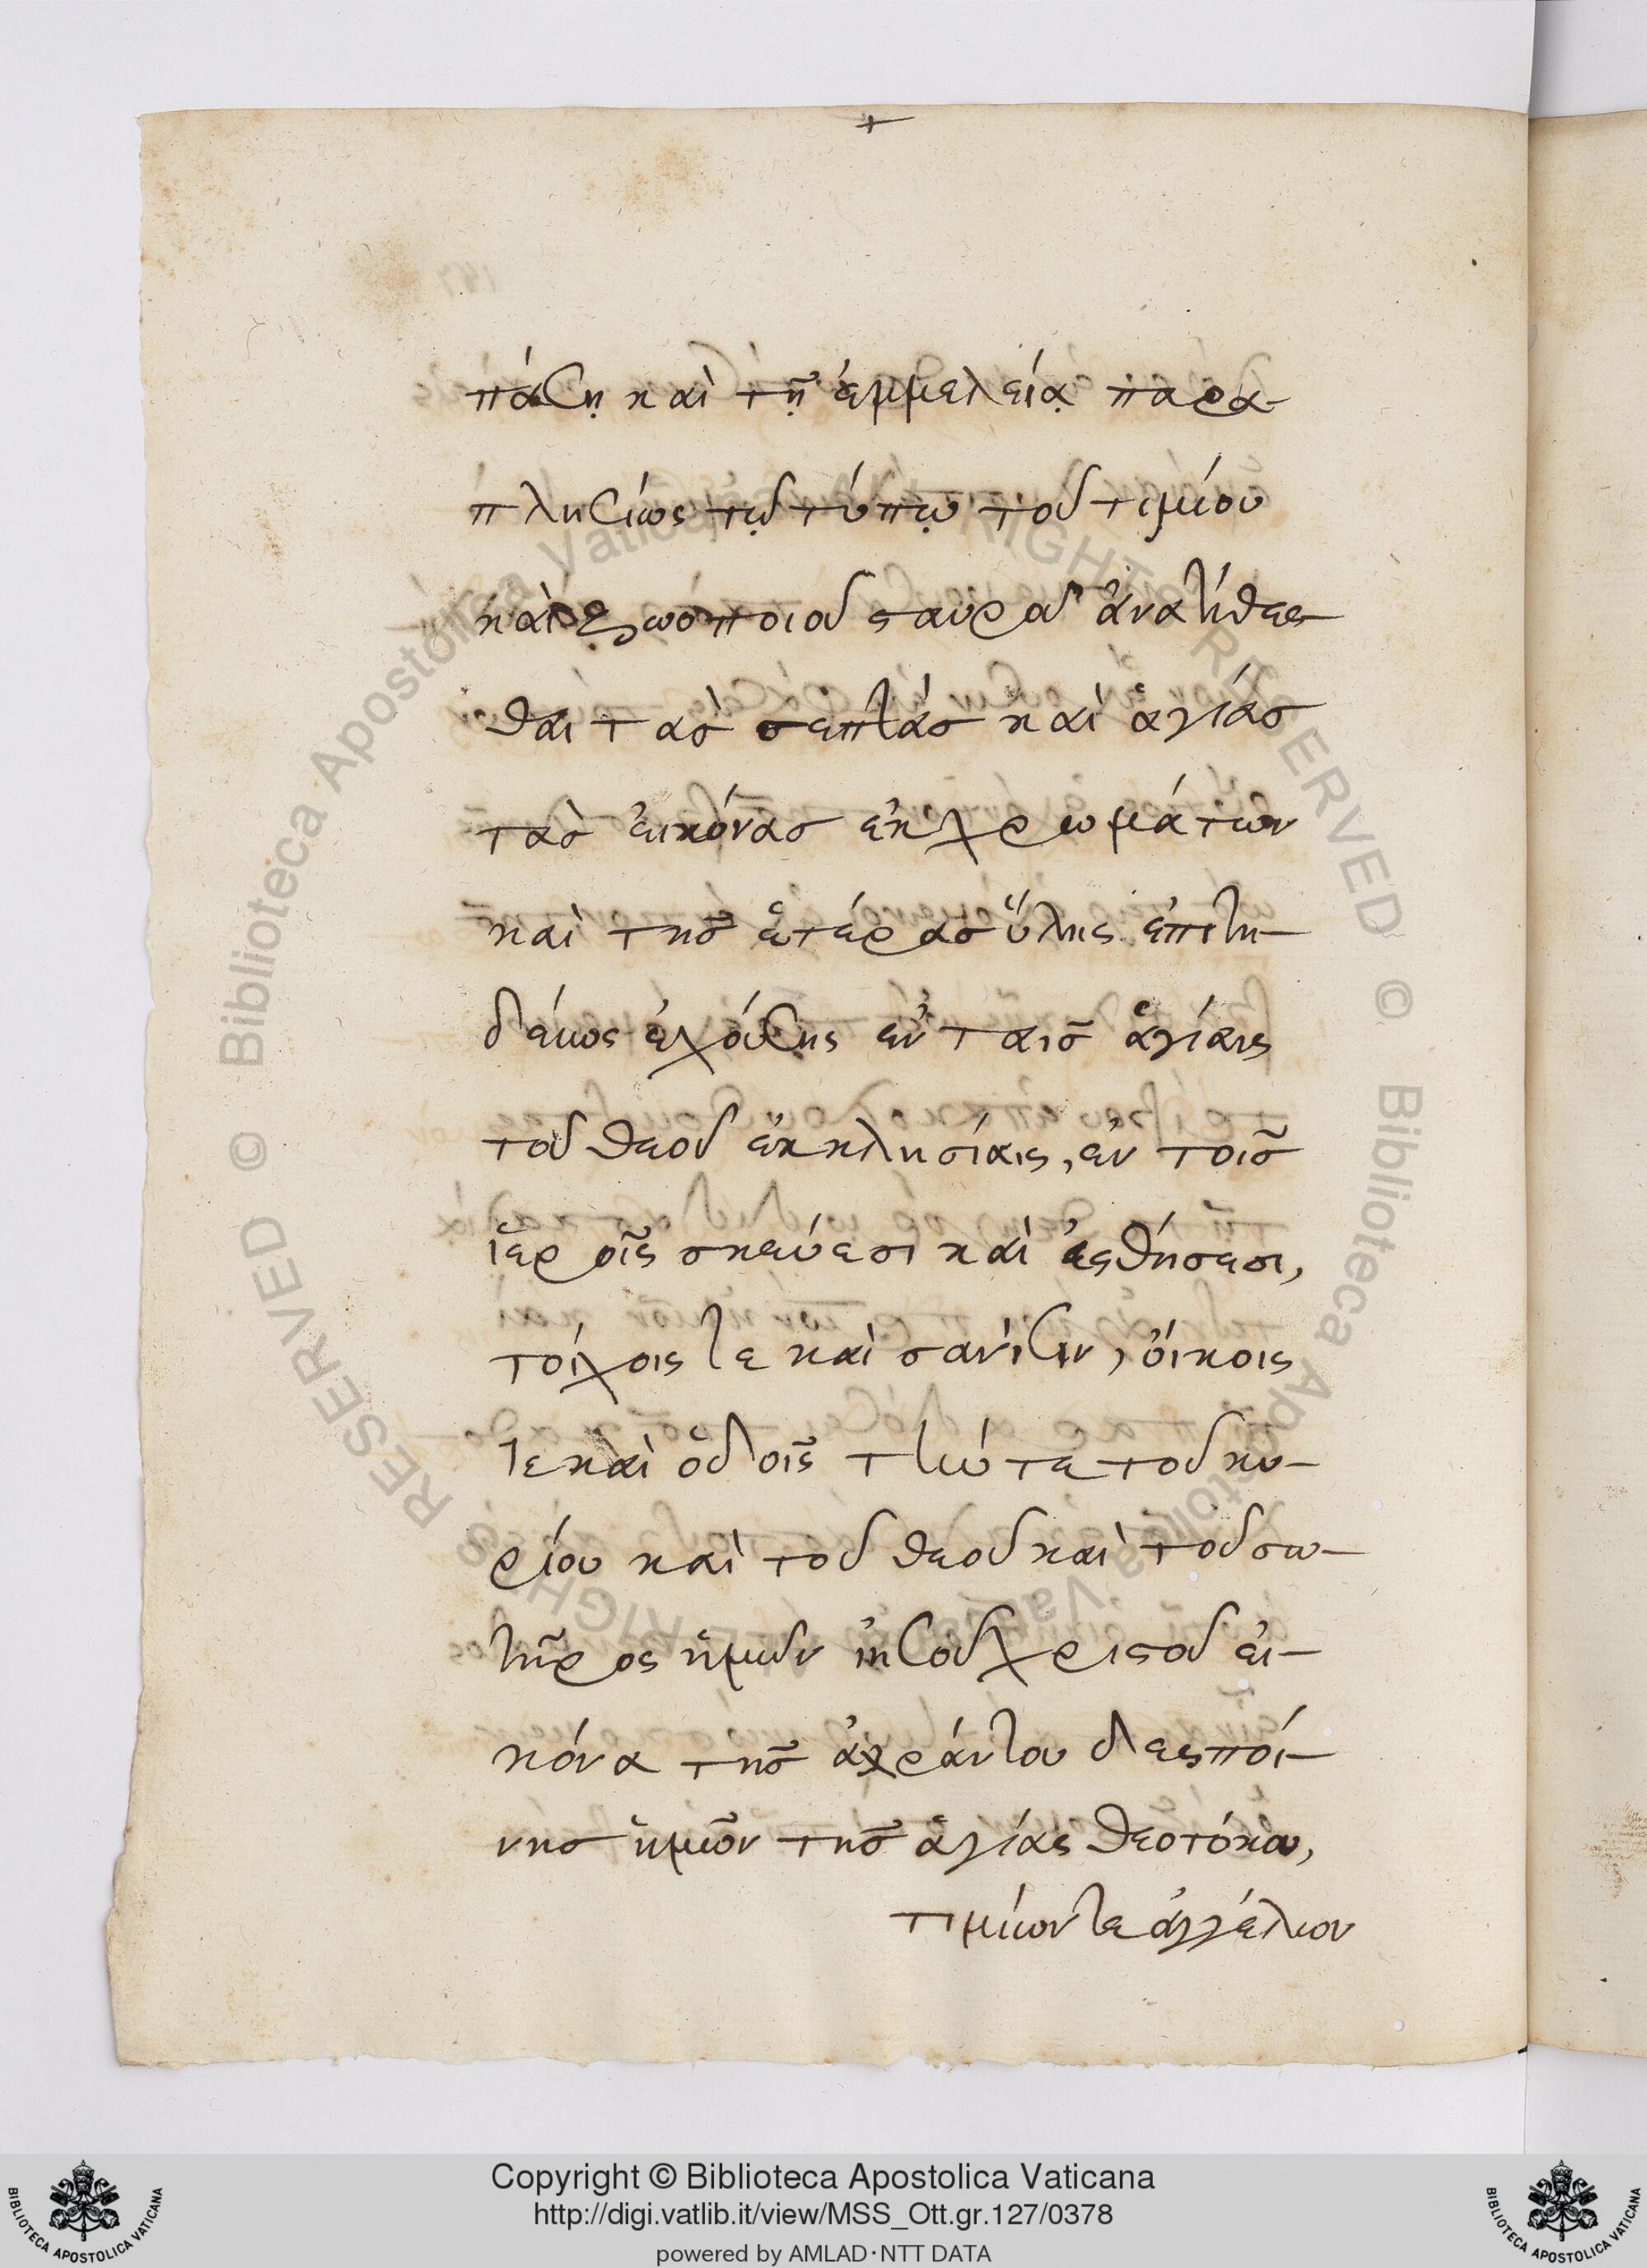 πάσῃ καὶ τῇ ἐμμελείᾳ παρα-
πλησίως τῷ τύπῳ τοῦ τιμίου
καὶ ζωοποιοῦ σταυροῦ ἀνατίθεσ-
θαι τὰσ σεπτάσ καὶ ἁγίάσ
τὰσ εἰκόνασ ἐκ χρωμάτων
καὶ τῆσ ἑτέρασ ὕλης ἐπιτη-
δείως ἐχόυσης ἐν ταῖσ ἁγίαις
τοῦ θεοῦ ἐκκλησίαις, ἐν τοῖσ
ἱεροῖς σκεύεσι καὶ ἐσθήσεσι,
τοίχοις τε καὶ σανίσιν, οἴκοις
τε καὶ ὁδοῖς τήν τε τοῦ κυ-
ρίου καὶ τοῦ θεοῦ καὶ τοῦ σω-
τῆρος ἡμῶν ἰησοῦ χριστοῦ εἰ-
κόνα τῆσ ἀχράντου δεσποί-
νησ ἡμῶν τῆσ ἁγίας θεοτόκου,
τιμίων τε ἀγγέλων
Copyright © Biblioteca Apostolica Vaticana
http://digi.vatlib.it/view/MSS_Ott.gr.127/0378
powered by AMLAD·NTT DATA
BIBLIOTECA APOSTOLICA VATICANA
BIBLIOTECA APOSTOLICA VATICANA